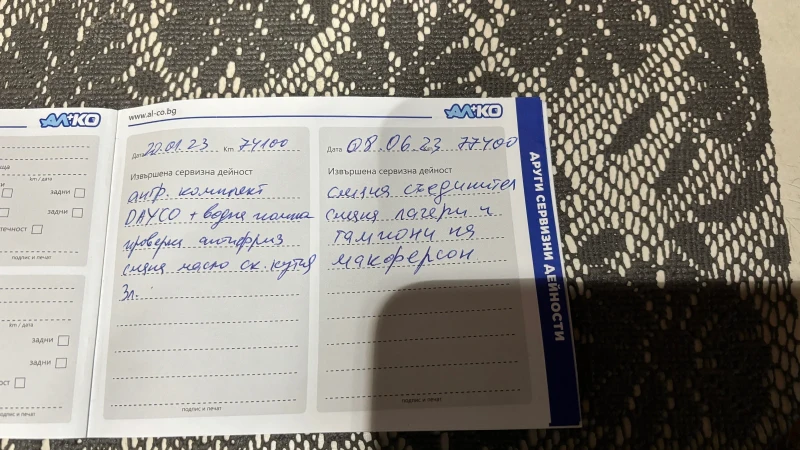 АЛ-КО
ща
km / дата
и
задни
задни
течност
подпис и печат
km / дата
задни
задни
ост
подпис и печат
www.al-co.bg
АЛ-КО
Дата 20.01.23 Km 74100
Извършена сервизна дейност
анг. комплект
DAYCO + водна помпа
проверка антифриз
смяна масло ск. кутия
3л.
подпис и печат
Дата 08.06.23 77400
Извършена сервизна дейност
смяна съединител
смяна лагери и
тампони на
макферсон
подпис и печат
ДРУГИ СЕРВИЗНИ ДЕЙНОСТИ